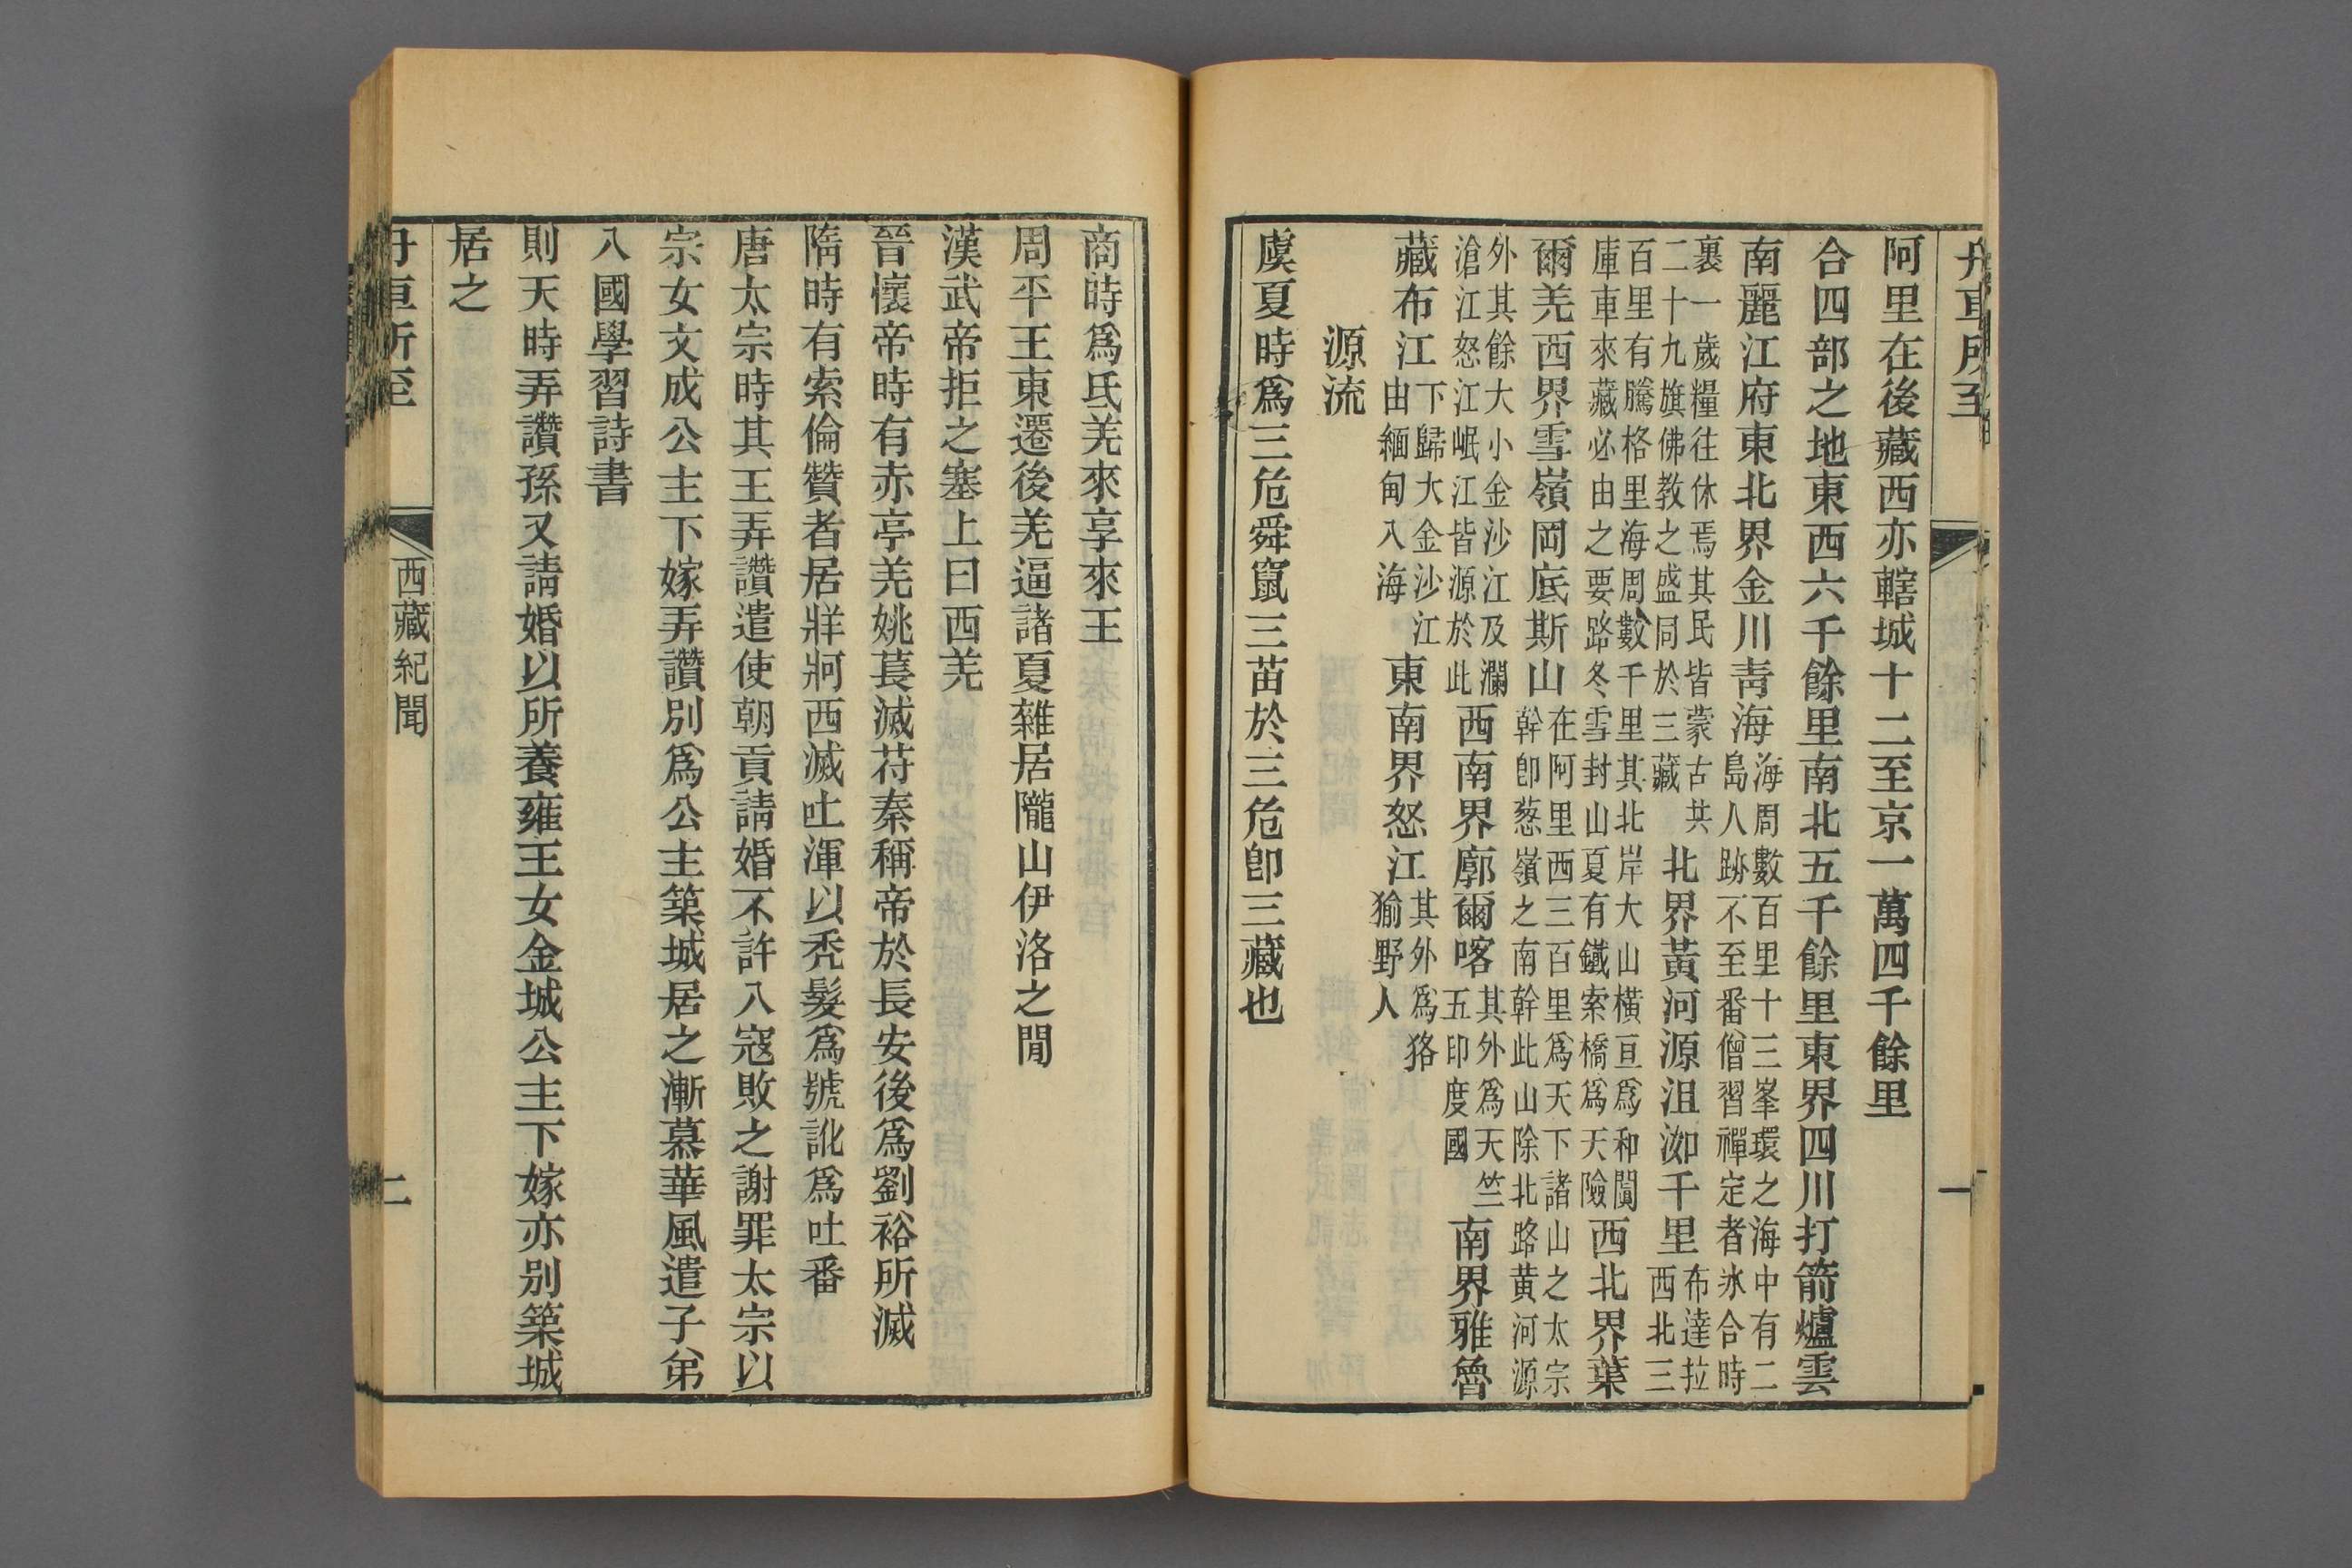 舟車所至　一
阿里在後藏西亦轄城十二至京一萬四千餘里
合四部之地東西六千餘里南北五千餘里東界四川打箭爐雲
南麗江府東北界金川靑海海周數百里十三峯環之海中有二島人跡不至番僧習禪定者氷合時
裹一歲糧往休焉其民皆蒙古共二十九旗佛教之盛同於三藏北界黃河源沮洳千里布達拉西北三
百里有騰格里海周數千里其北岸大山橫亘爲和闐庫車來藏必由之要路冬雪封山夏有鐵索橋爲天險西北界葉
爾羌西界雪嶺岡底斯山在阿里西三百里爲天下諸山之太宗幹卽葱嶺之南幹此山除北路黄河源
外其餘大小金沙江及瀾滄江怒江岷江皆源於此西南界廓爾喀其外爲天竺五印度國南界雅魯
藏布江下歸大金沙江由緬甸入海東南界怒江其外爲狢㺄野人
源流
虞夏時爲三危舜竄三苗於三危卽三藏也
商時爲氐羌來享來王
周平王東遷後羌逼諸夏雜居隴山伊洛之閒
漢武帝拒之塞上曰西羌
晉懷帝時有赤亭羌姚萇滅苻秦稱帝於長安後爲劉裕所滅
隋時有索倫贊者居牂牁西滅吐渾以禿髮爲號訛爲吐番
唐太宗時其王弄讚遣使朝貢請婚不許入寇敗之謝罪太宗以
宗女文成公主下嫁弄讚別爲公主築城居之漸慕華風遣子弟
入國學習詩書
則天時弄讚孫又請婚以所養雍王女金城公主下嫁亦别築城
居之
舟車所至　西藏紀聞　二